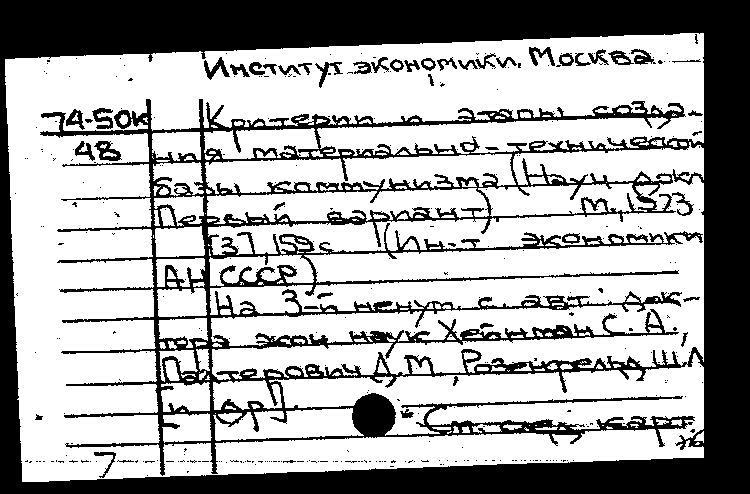 Институт экономики. Москва.
74-50к Критерии и этапы созда-
48 ния материально-технической
базы коммунизма. (Науч. докл.
Первый вариант). М., 1973.
[3], 159 с. (Ин-т экономики
АН СССР).
На 3-й ненум. с. авт.: док-
тора экон наук Хейнман С. А.,
Палтерович Д. М., Розенфельд Ш. Л.
[и др].
См. след. карт.
7